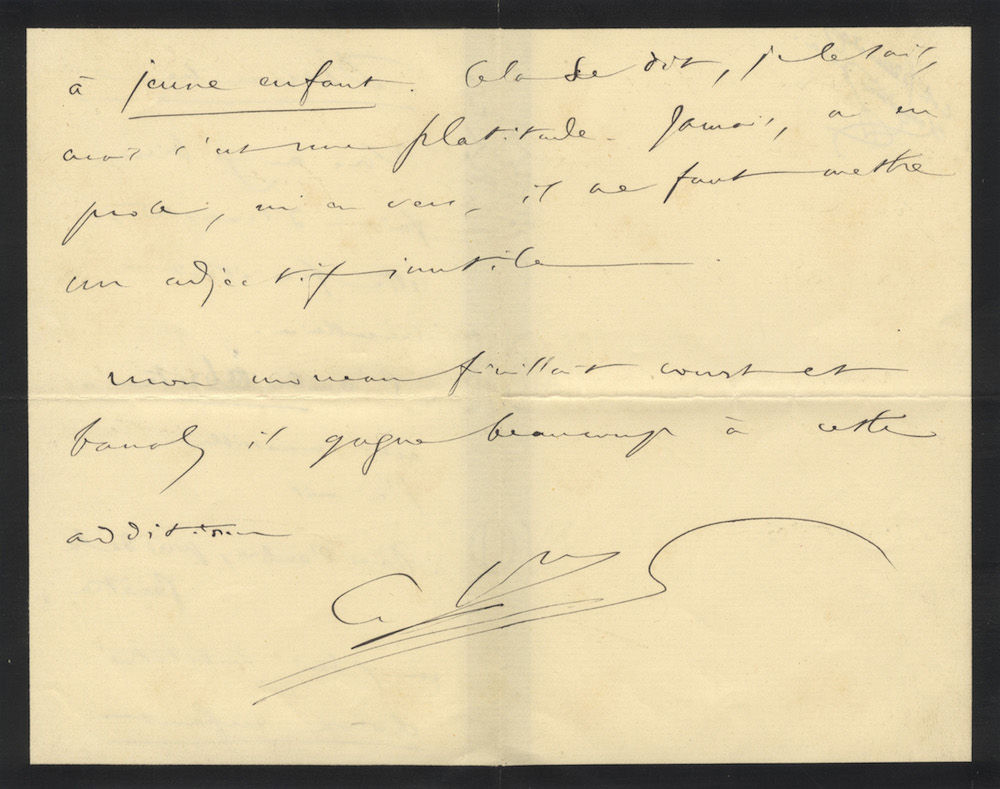 à jeune enfant. Cela se dit, je le sais,
mais c'est une platitude. Jamais, ni en
prose, ni en vers, il ne faut mettre
un adjectif inutile.
mon morceau court et
banal, il gagne beaucoup à cette
addition